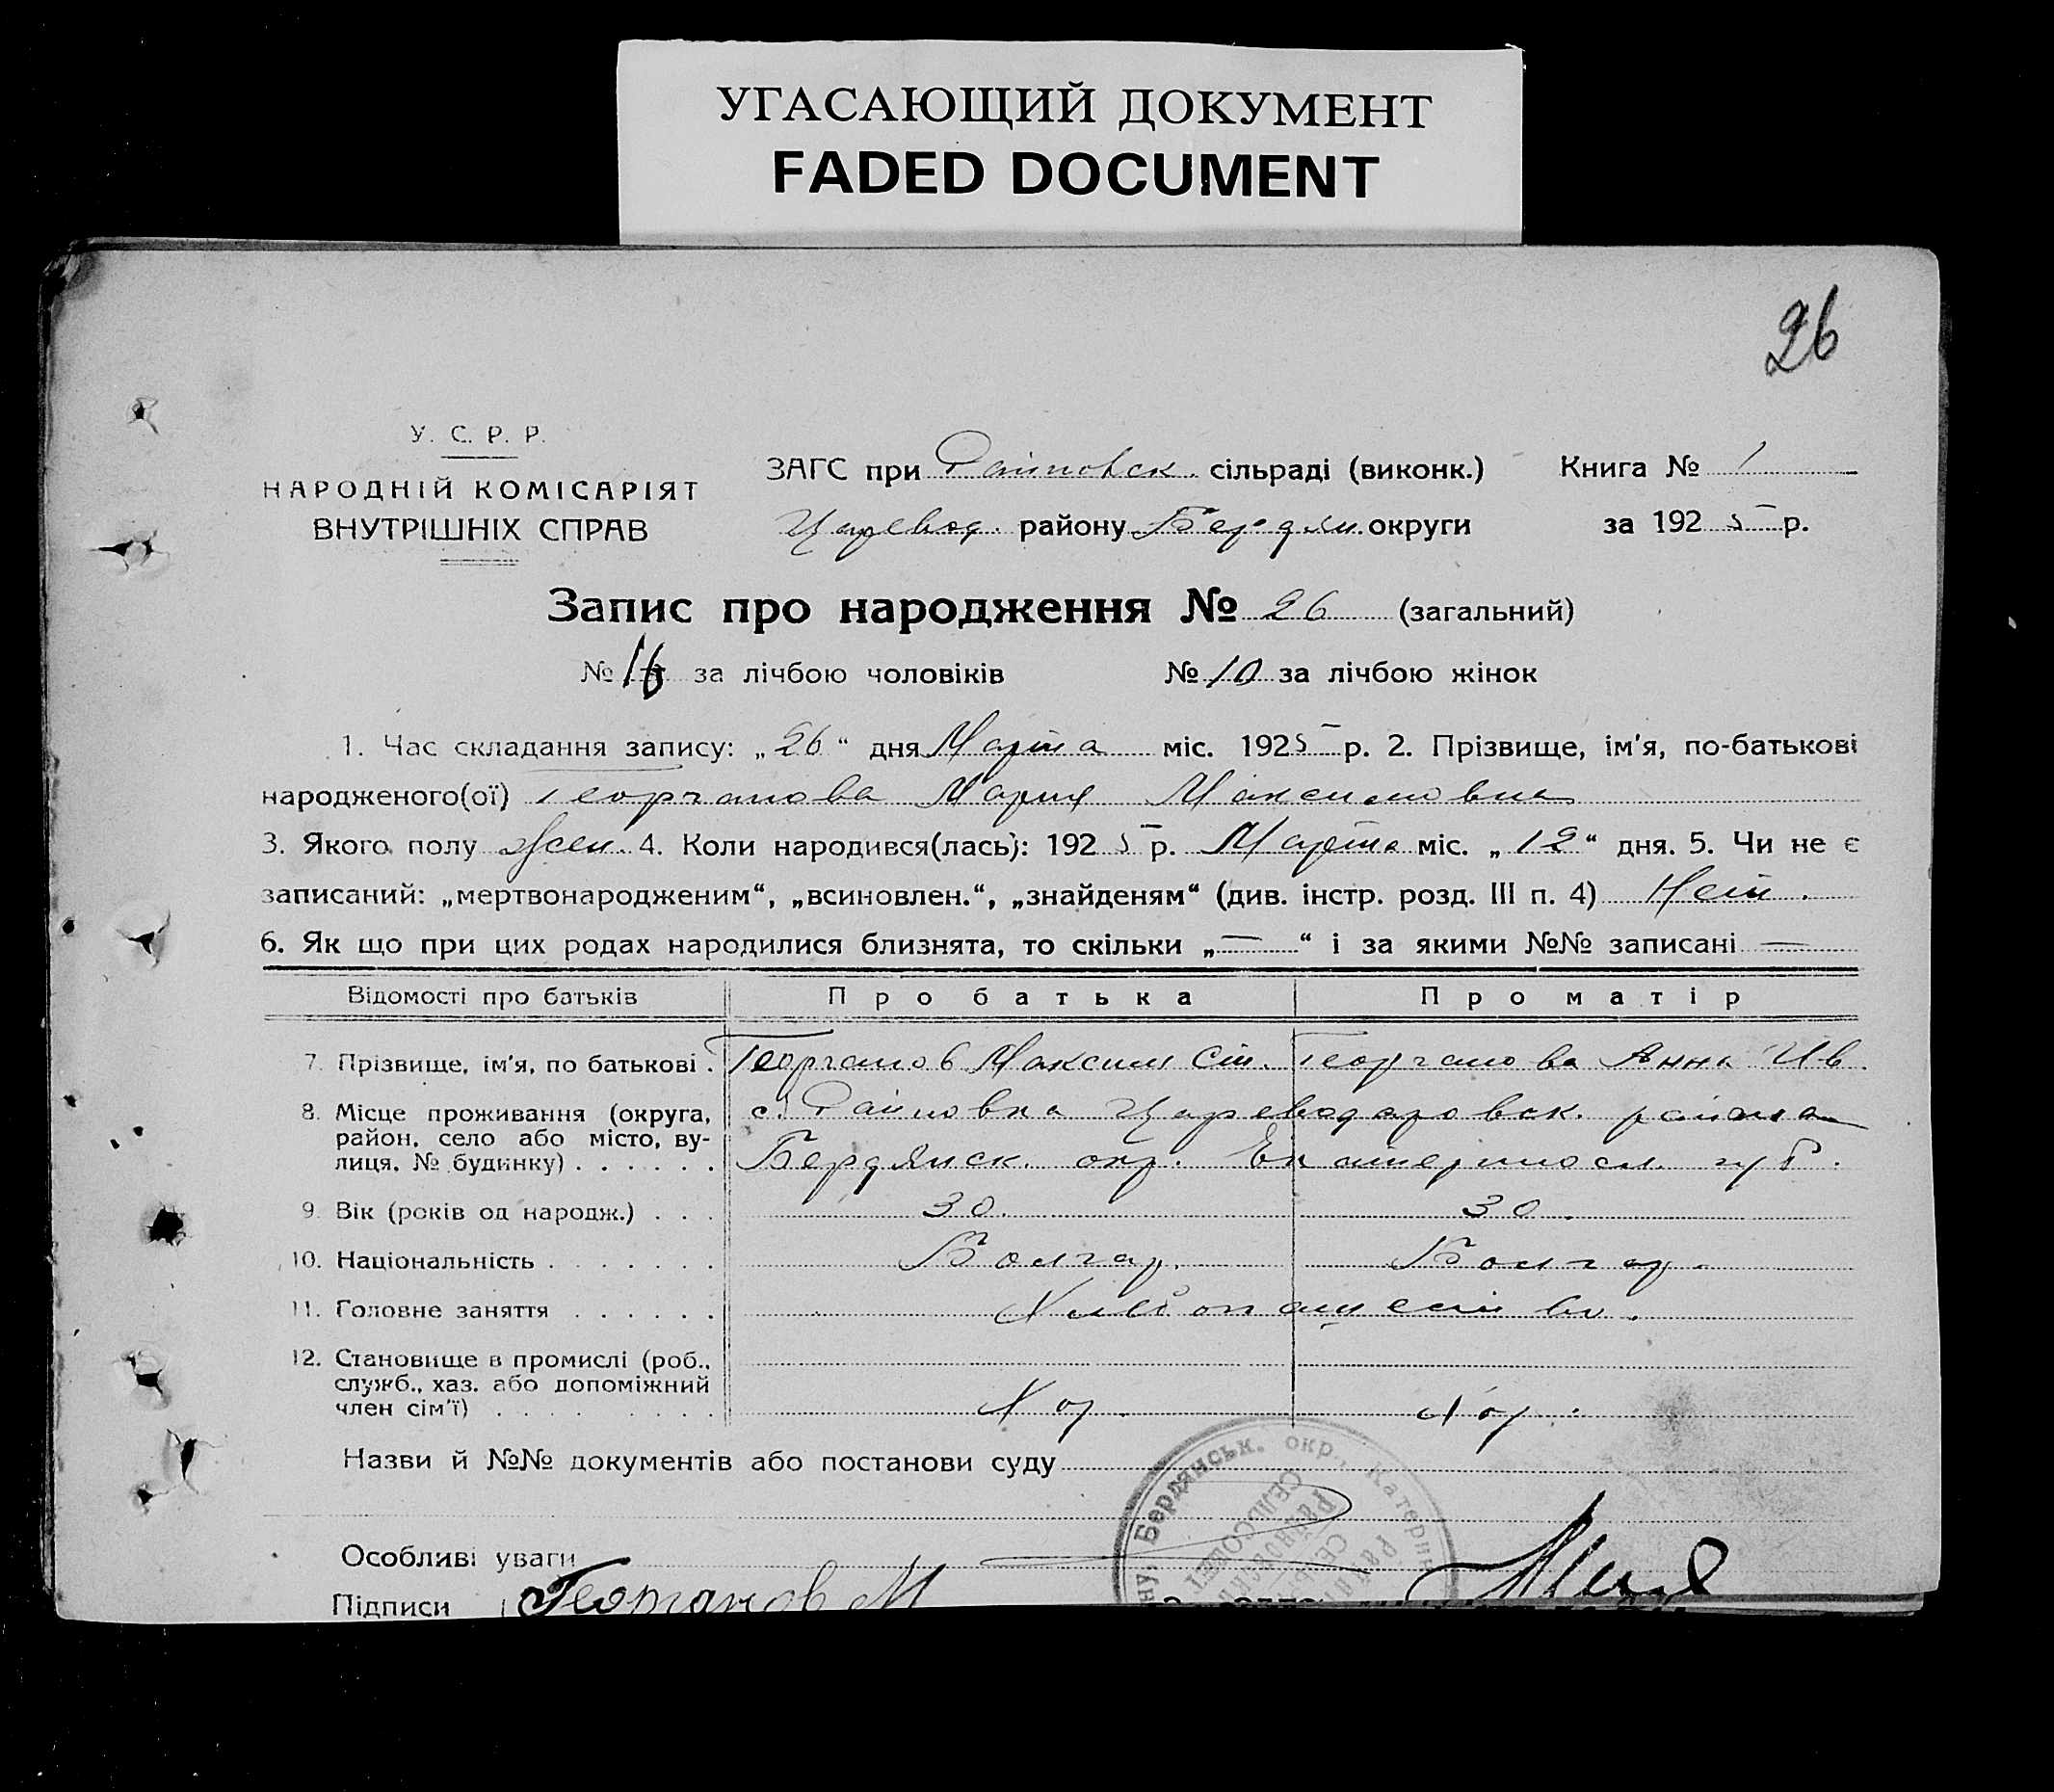 УГАСАЮЩИЙ ДОКУМЕНТ
FADED DOCUMENT
26
У. С. Р. Р.
НАРОДНІЙ КОМІСАРІЯТ
ВНУТРІШНІХ СПРАВ
ЗАГС при Райновск. сільраді (виконк.) Книга № 1
Царевод. району Бердян. округи за 1925 р.
Запис про народження № 26 (загальний)
№ 16 за лічбою чоловіків № 10 за лічбою жінок
1. Час складання запису: „26“ дня Марта міс. 1925 р. 2. Прізвище, ім'я, по-батькові
народженого(ої) Георганова Мария Максимовна
3. Якого полу жен. 4. Коли народився(лась): 1925 р. Марта міс. „12“ дня. 5. Чи не є
записаний: „мертвонародженим“, „всиновлен.“, „знайденям“ (див. інстр. розд. III п. 4) Нет.
6. Як що при цих родах народилися близнята, то скільки „—“ і за якими №№ записані —
Відомості про батьків Про батька Про матір
7. Прізвище, ім'я, по батькові . Георганов Максим Ст. Георганова Анна Ив.
8. Місце проживання (округа, с. Райновка Цареводаровск. района
район, село або місто, ву-
лиця, № будинку) . . . . . . Бердянск. окр. Екатериносл. губ.
9. Вік (років од народж.) . . . 30. 30.
10. Національність . . . . . . . Болгар. Болгар.
11. Головне заняття . . . . . . Хлебопашество.
12. Становище в промислі (роб.,
служб., хаз. або допоміжний
член сім'ї) . . . . . . . . . Хоз. Хоз.
Назви й №№ документів або постанови суду
Особливі уваги
Підписи Георганов М
Бердянськ. окр., Катерин
СЕЛЬСОВЕТ